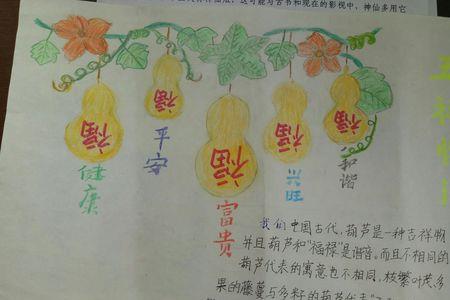 这可能与古书和现在的影视中，神仙多用它
福
福
福
福
福
健康
平安
富贵
兴旺
和谐
我们中国古代，葫芦是一种吉祥物
并且葫芦和“福禄”是谐音。而且不相同的
葫芦代表的寓意也不相同，枝繁叶茂多
果的藤蔓与多籽的葫芦代表